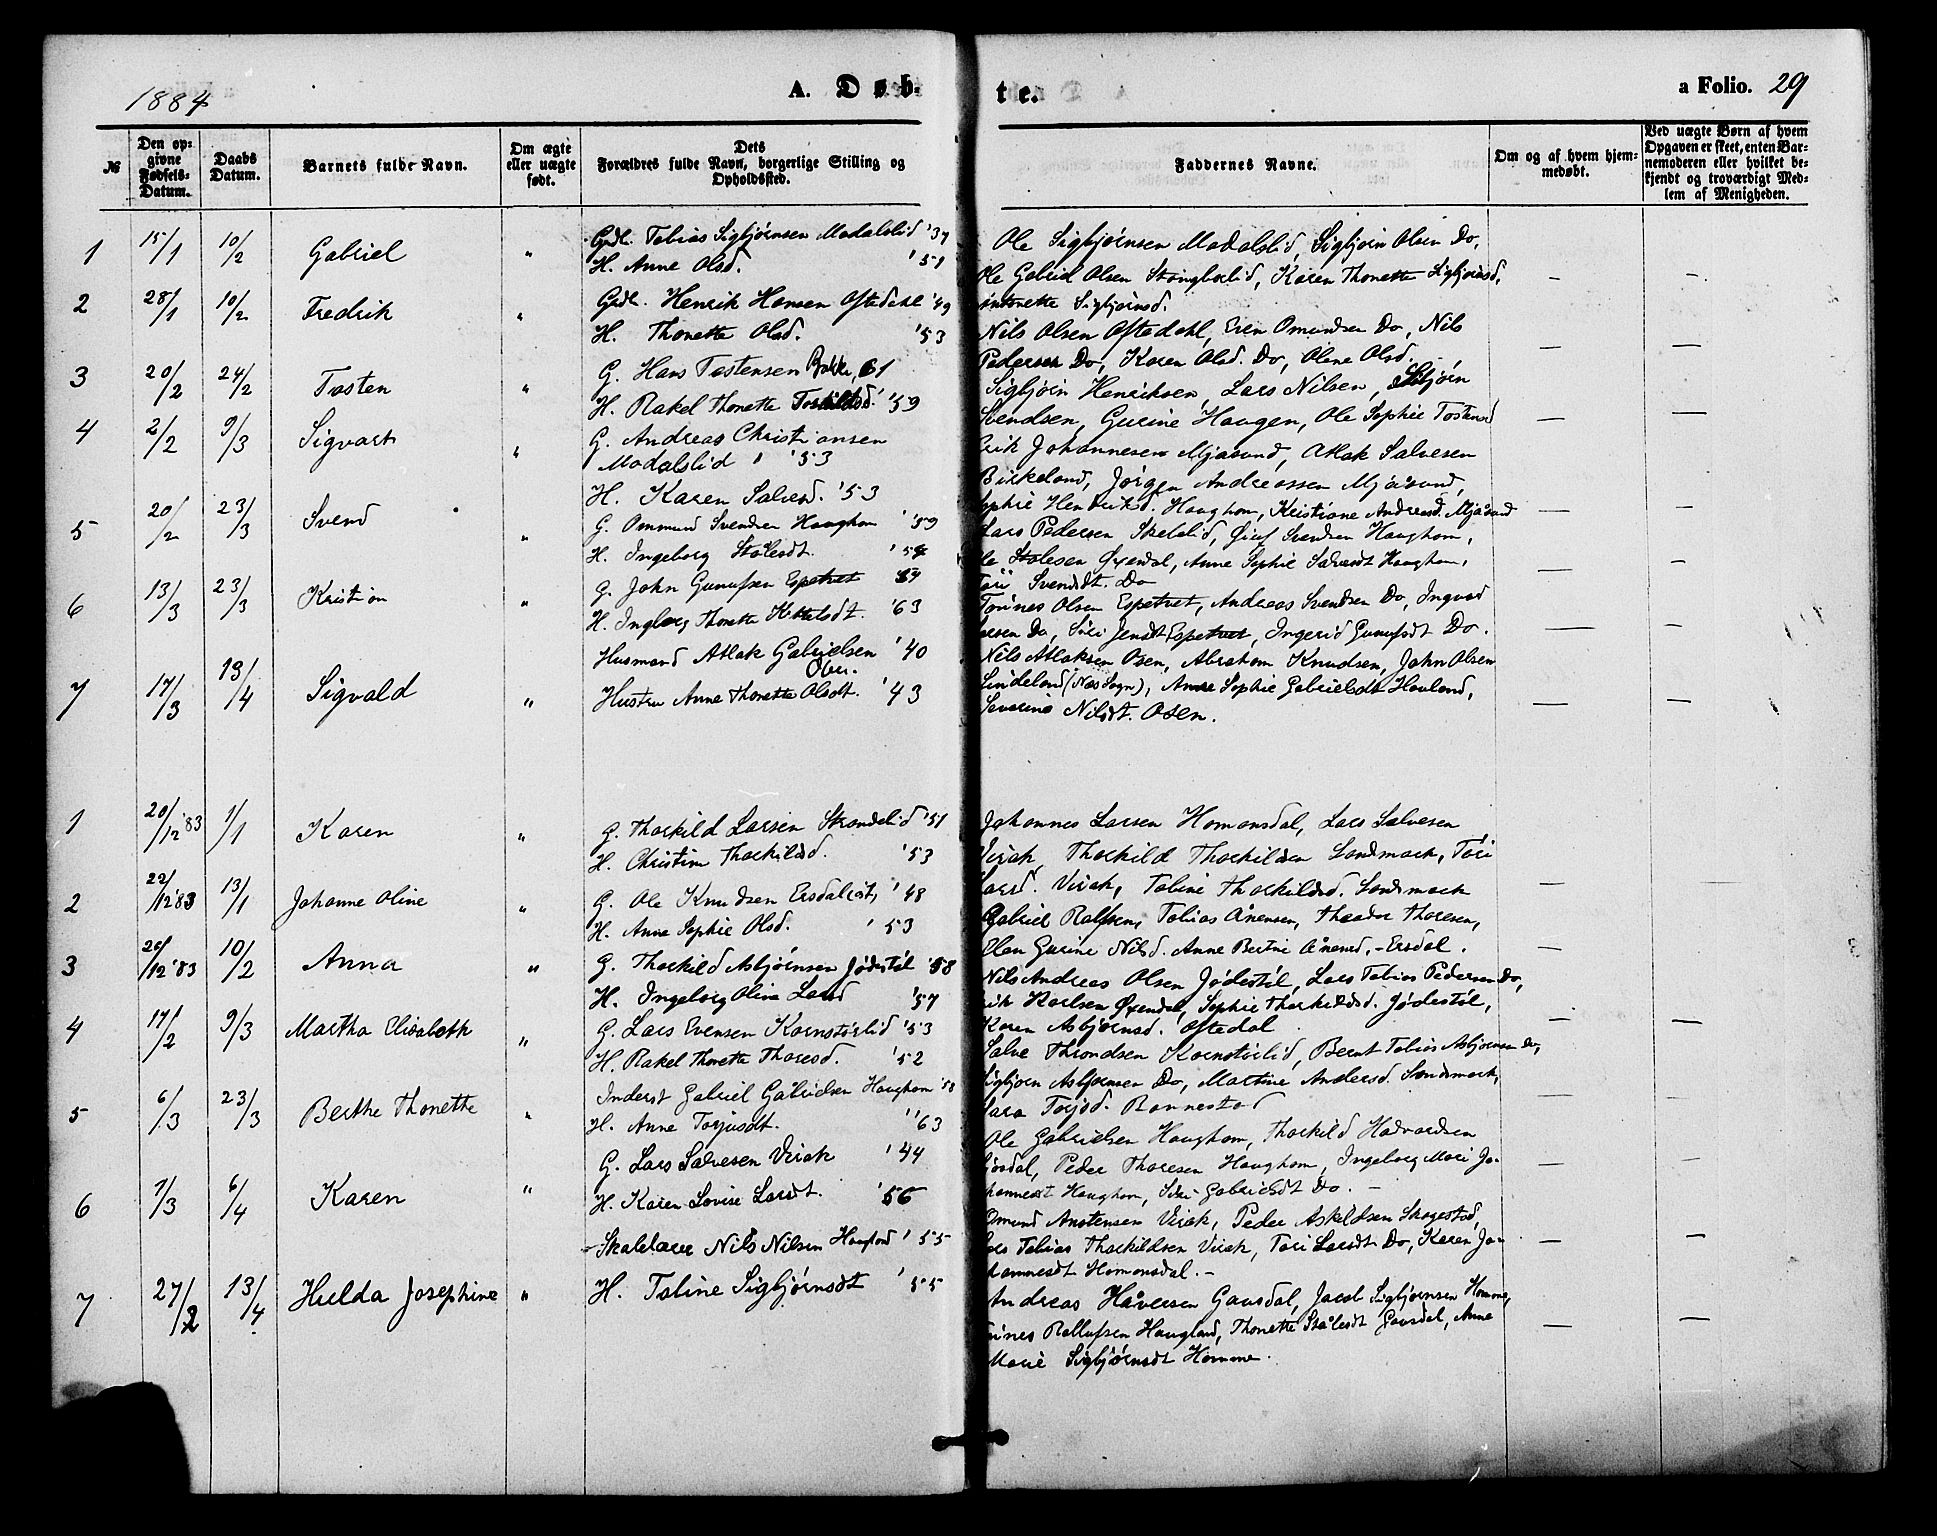 1884 A. Døb-
te. a Folio. 29
№ Den opgivne Fødsels-Datum. Daabs Datum. Barnets fulde Navn. Om ægte eller uægte født. Dets Forældres fulde Navn, borgerlige Stilling og Opholdssted. Faddernes Navne. Om og af hvem hjemmedøbt. Ved uægte Børn af hvem Opgaven er skeet, enten Barnemoderen eller hvilket bekjendt og troværdigt Medlem af Menigheden.
1 15/1 10/2 Gabriel " Grdl. Tobias Sigbjørnsen Modalslid '37
H. Anne Olsd. '51
Ole Sigbjørnsen Modalslid, Sigbjørn Olsen Do,
Ole Gabriel Olsen Stongborlid, Karen Thonette Sigbjørnsd, — —
Sigbjørnsd.
2 28/1 10/2 Fredrik " Grdl. Henrik Hansen Oftedahl '49
H. Thonette Olsd. '53
Nils Olsen Oftedahl, Even Omundsen Do, Nils
Pedersen Do, Karen Olsd. Do, Olene Olsd. — —
3 20/2 24/2 Tosten " G. Hans Tostensen Bakke, 61
H. Rakel Thonette Torkildsd. '59
Sigbjørn Henriksen, Lars Nilsen, Sigbjørn
Svendsen, Gurine Haugen, Ole Sophie Tostensd — —
4 2/2 9/3 Sigvart " G. Andreas Christiansen
Modalslid '53
H. Karen Salvesd. '53
Erik Johannesen Mjasund, Atlak Salvesen
Birkeland, Jørgen Andreassen Mjåsund,
Sophie Henriksd. Haughom, Kristiane Andreasd. Mjåsund — —
5 20/2 23/3 Svend " G. Ommund Svendsen Haughom '59
H. Ingeborg Stålesdt. '54
Lars Pedersen Skeldlid, Svendsen Haughom,
Ole Stalesen Øxendal, Anne Sophie Salvesdt Haughom, — —
Tori Svendsdt. Do
6 13/3 23/3 Kristian " G. John Gunufsen Espetvet 54
H. Ingborg Thonette Kittelsdt. '63
Tørines Olsen Espetvet, Andreas Svendsen Do, Ingvad
Do, Siri Jensdt Espetvet, Ingerid Gunufsdt Do. — —
7 17/3 13/4 Sigvald " Husmand Atlak Gabrielsen '40
Osen.
Hustru Anne Thonette Olsdt. '43
Nils Atlaksen Osen, Abraham Knudsen, John Olsen
Lindeland (Næs Sogn), Anne Sophie Gabrielsdt Hovland,
Severine Nilsdt. Osen. — —
1 20/12 '83 1/1 Karen " G. Thorkild Larsen Strandelid '51
H. Christine Thorkildsd. '53
Johannes Larsen Homansdal, Lars Salvesen
Virak, Thorkild Thorkildsen Sandsmark, Tori
Larsd. Virak, Tobine Thorkildsd. Sandsmark — —
2 22/12 '83 13/1 Johanne Oline " G. Ole Knudsen '48
H. Anne Sophie Olsd. '53
Gabriel Rolfsen, Tobias Ånensen, Theodor Thoresen,
Elen Gurine Nilsd. Anne Bertine Ånensd, - Ersdal. — —
3 20/12 '83 10/2 Anna " G. Thorkild Asbjørnsen Jødestøl '58
H. Ingeborg Oline Larsd '57
Nils Andreas Olsen Jødestøl, Lars Tobias Pedersen Do,
Erik Karlsen Øxendal, Sophie Thorkildsd. Jødestøl,
Karen Asbjørnsd. Oftedal — —
4 17/2 9/3 Martha Elisabeth " G. Lars Evensen Kornstørlid '53
H. Rakel Thonette Thoresd. '52
Salve Throndsen Kornstørlid, Bernt Tobias Asbjørnsen Do,
Sigbjørn Asbjørnsen Do, Martine Andersd. Sandsmark,
Sara Torjsd. Rannestad — —
5 6/3 23/3 Berthe Thonette " Inderst Gabriel Gabrielsen Haughom '58
H. Anne Torjusdt. '63
Ole Gabrielsen Haughom, Thorkild Hadvardsen
Peder Thoresen Haughom, Ingeborg Mari Jo-
hannesdt Haughom, Siri Gabrielsdt Do. — — —
6 1/3 6/4 Karen " G. Lars Salvesen Virak '44
H. Karen Lovise Larsdt. '56
Omund Anstensen Virak, Peder Askildsen Skogestad,
Lars Tobias Thorkildsen Virak, Tori Larsdt Do, Karen Jo-
hannesdt Homansdal. — — —
7 27/2 13/4 Hulda Josephine " Skolelærer Nils Nilsen Haugland '55
H. Tobine Sigbjørnsdt '55
Andreas Håversen Gausdal, Jacob Sigbjørnsen Homme,
Tørines Rolfufsen Haugland, Thonette Stålesdt Gausdal, Anne
Marie Sigbjørnsdt Homme. — —